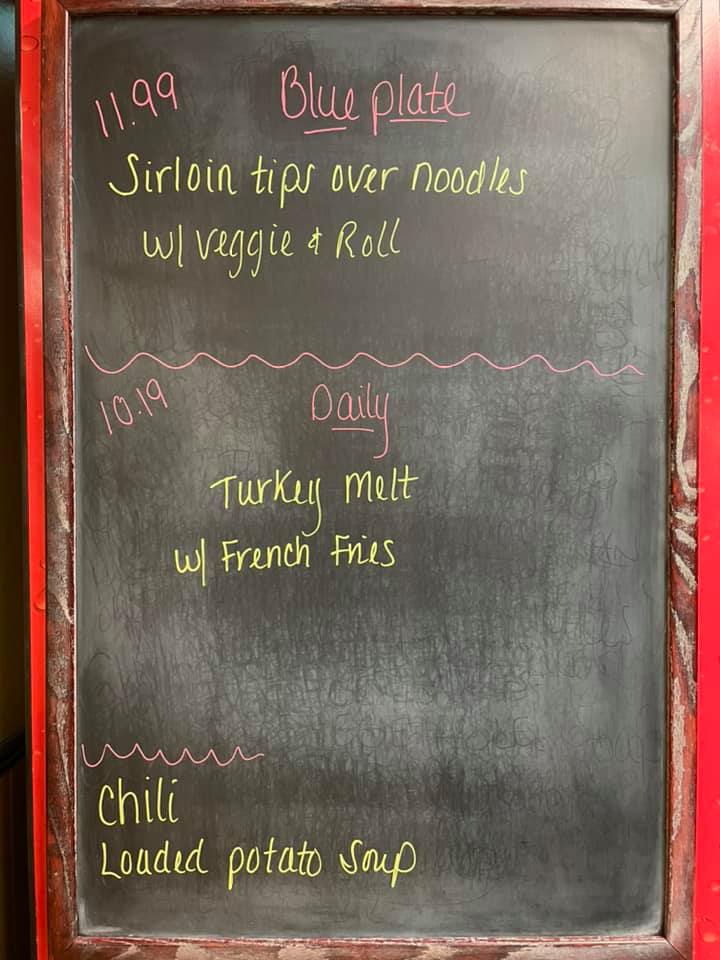 11.99 Blue plate
Sirloin tips over noodles
w/ veggie & Roll
10.19 Daily
Turkey melt
w/ French Fries
Chili
Loaded potato soup